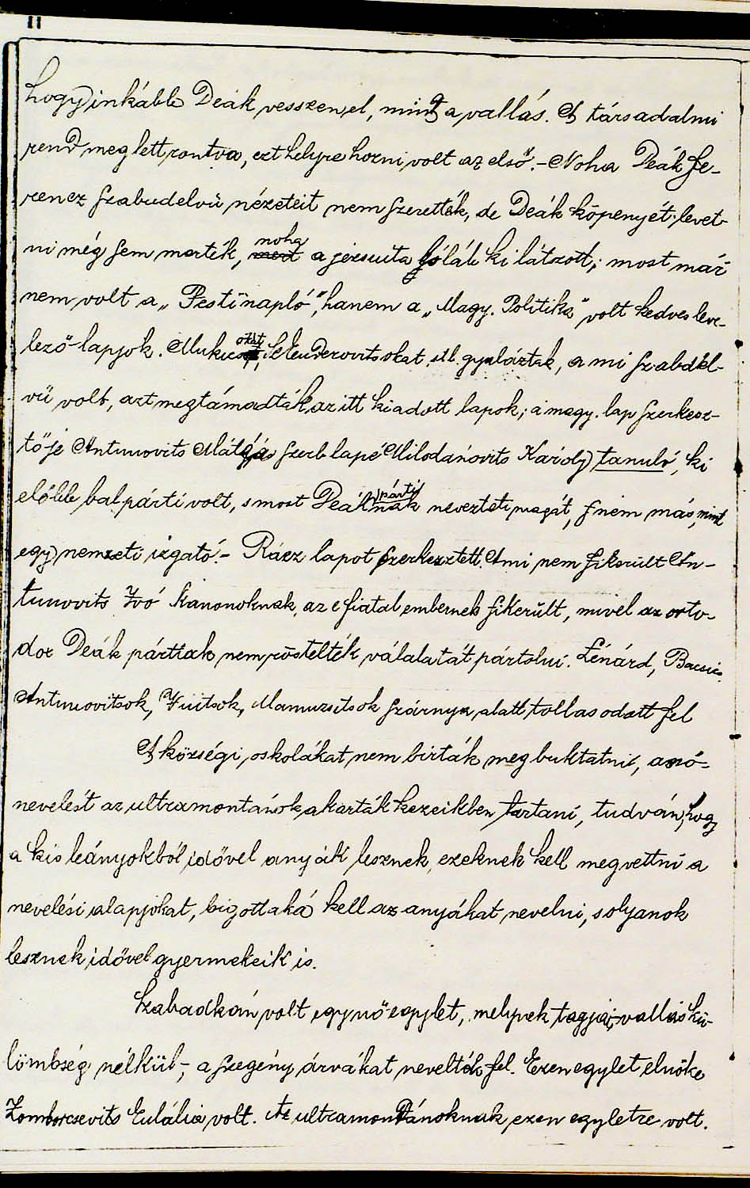 11
hogy inkább Deák vesszen el, mint a vallás. A társadalmi
rend meg lett rontva, ezt helyre hozni volt az első. - Noha Deák Fe-
rencz szabadelvü nézeteit nem szerették, de Deák köpenyét levet-
ni még sem merték, noha a jezsuita ló láb ki látzott; most már
nem volt a „Pesti napló", hanem a „Magy. Politika" volt kedves leve-
lező lapjok. Mukics okat, Selenderovitsokat, stb. gyalázták, a mi szabadel-
vü volt, azt megtámadták az itt kiadott lapok; a magy. lap szerkesz-
tője Antunovits Mátyás szerb lapé Milodanovits Károly tanuló, ki
előbb balpárti volt, s most Deák párti nak nevezteti magát, s nem más, mint
egy nemzeti izgató. - Rácz lapot szerkesztett. Ami nem sikerült An-
tunovits Ivó kanonoknak, az e fiatal embernek sikerült, mivel az orto-
dox Deák pártiak nem röstelték válalatát pártolni. Lénárd, Bacsics
Antunovitsok, Vuitsok, Mamuzsitsok szárnya alatt tollasodott fel
A községi oskolákat nem birták meg buktatni, a nő-
nevelést az ultramontánok akarták kezeikben tartani, tudván, hogy
a kis leányokból idővel anyák lesznek, ezeknek kell megvettni a
nevelési alapjokat, bigottaká kell az anyákat nevelni, s olyanok
lesznek idővel gyermekeik is.
Szabadkán volt egy nő egylet, melynek tagjai, vallás kü-
lömbség nélkül -, a szegény árvákat nevelték fel. Ezen egylet elnöke
Zomborcsevits Eulália volt. Az ultramontánoknak ezen egyletre volt.